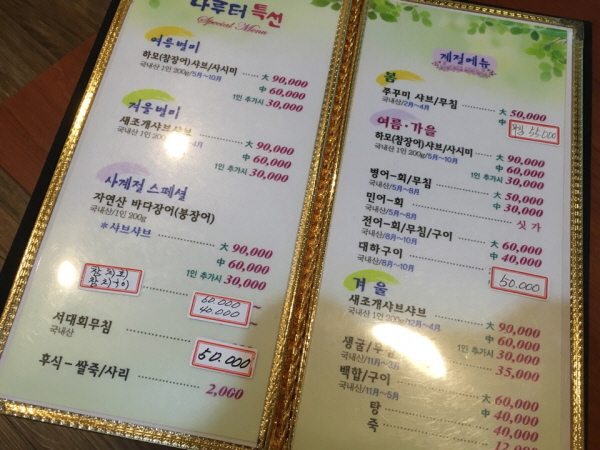 나루터 특선
Special Menu
여름별미
하모(참장어)샤브/사시미 大 90,000
국내산/1인 200g/5월~10월 中 60,000
1인 추가시 30,000
겨울별미
새조개샤브샤브 大 90,000
국내산/1인 200g 中 60,000
1인 추가시 30,000
사계절 스페셜
자연산 바다장어(붕장어)
국내산/1인 200g
샤브샤브 大 90,000
中 60,000
1인 추가시 30,000
60.000
40.000
서대회무침 50.000
국내산
후식-쌀죽/사리 2,000
계절메뉴
봄
쭈꾸미 샤브/무침 大 50,000
국내산/2월~4월 中
55.000
여름·가을
하모(참장어)샤브/사시미 大 90,000
국내산/1인 200g/5월~10월 中 60,000
1인 추가시 30,000
병어-회/무침 大 50,000
국내산/5월~8월 中 30,000
민어-회 싯가
국내산/5월~8월
전어-회/무침/구이 大 60,000
국내산/8월~10월 中 40,000
대하구이 50.000
국내산/8월~10월
겨울
새조개샤브샤브 大 90,000
국내산/1인 200g/12월~4월 中 60,000
1인 추가시 30,000
생굴/ 35,000
국내산/11월~3월
백합/구이 大 60,000
국내산/11월~5월 中 40,000
탕 40,000
죽 12,000